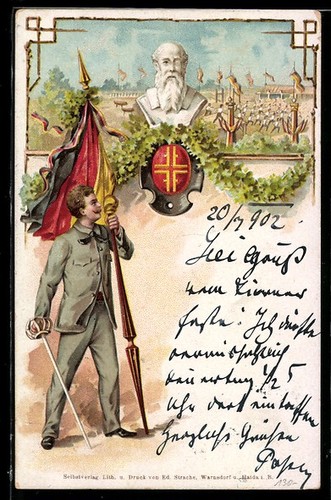 20/7 902
Heil Gruß
vom Turner
feste! Ich dürfte
Uhr dort eintreffen
Herzliche Grüße
Selbstverlag. Lith. u. Druck von Ed. Strache, Warnsdorf u. Haida i. B.
130.-